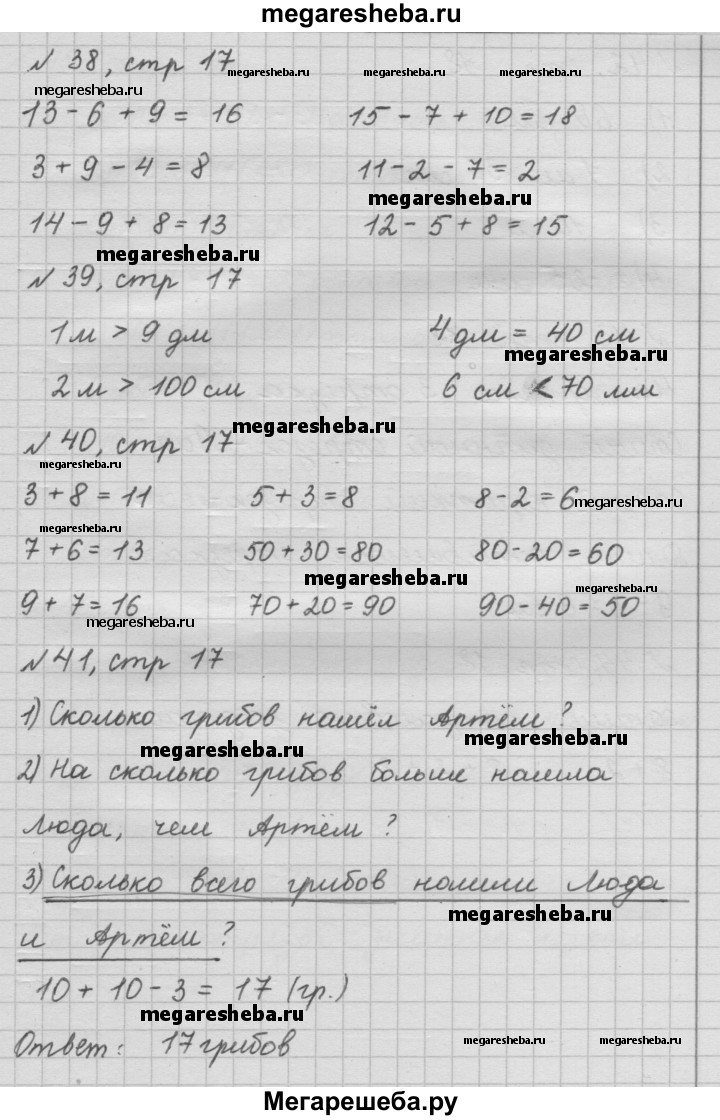 megaresheba.ru
№ 38, стр 17
megaresheba.ru megaresheba.ru megaresheba.ru
13 - 6 + 9 = 16 15 - 7 + 10 = 18
3 + 9 - 4 = 8 11 - 2 - 7 = 2
megaresheba.ru
14 - 9 + 8 = 13 12 - 5 + 8 = 15
megaresheba.ru
№ 39, стр 17
1 м > 9 дм 4 дм = 40 см
megaresheba.ru
2 м > 100 см 6 см < 70 мм
megaresheba.ru
№ 40, стр 17
megaresheba.ru
3 + 8 = 11 5 + 3 = 8 8 - 2 = 6 megaresheba.ru
megaresheba.ru
7 + 6 = 13 50 + 30 = 80 80 - 20 = 60
megaresheba.ru megaresheba.ru
9 + 7 = 16 70 + 20 = 90 90 - 40 = 50
megaresheba.ru
№ 41, стр 17
1) Сколько грибов нашёл Артём?
megaresheba.ru megaresheba.ru
2) На сколько грибов больше нашла
Люда, чем Артём?
3) Сколько всего грибов нашли Люда
megaresheba.ru
и Артём?
10 + 10 - 3 = 17 (гр.)
megaresheba.ru
Ответ: 17 грибов
megaresheba.ru megaresheba.ru
Мегарешеба.ру